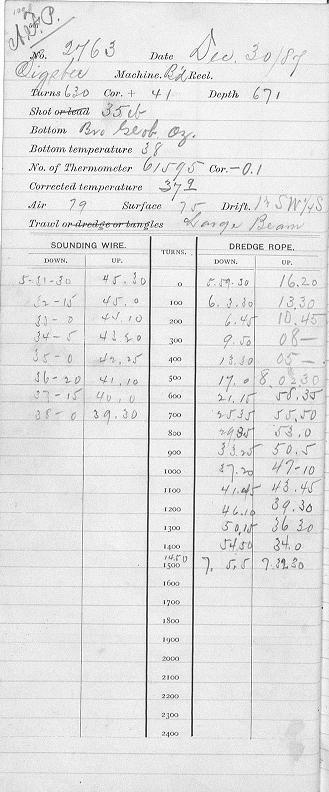 A.F.P.
No. 2763 Date Dec. 30/87
Sigsbee Machine. Rd. Reel.
Turns 630 Cor. + 41 Depth 671
Shot or lead 35 lb
Bottom Bro Glob. Oz.
Bottom temperature 38
No. of Thermometer 61595 Cor. —0.1
Corrected temperature 37.9
Air 79 Surface 75 Drift.
Trawl or dredge or tangles Large Beam
SOUNDING WIRE. TURNS. DREDGE ROPE.
DOWN. UP. DOWN. UP.
5-31-30 45.30 0 5.59.30 16.20
32-15 45.0 100 6.3.30 13.30
33-0 44.10 200 6.45 10.45
34-5 43.20 300 9.50 08—
35-0 42.25 400 13.30 05—
36-20 41.10 500 17.0 8.02.30
37-15 40.0 600 21.15 58.35
38-0 39.30 700 25.35 55.50
800 29.35 53.0
900 33.25 50.5
1000 37.20 47-10
1100 41.45 43.45
1200 46.10 39.30
1300 50.15 36 30
1400 54.50 34.0
1450
1500 7. 5.5 7.32.30
1600
1700
1800
1900
2000
2100
2200
2300
2400